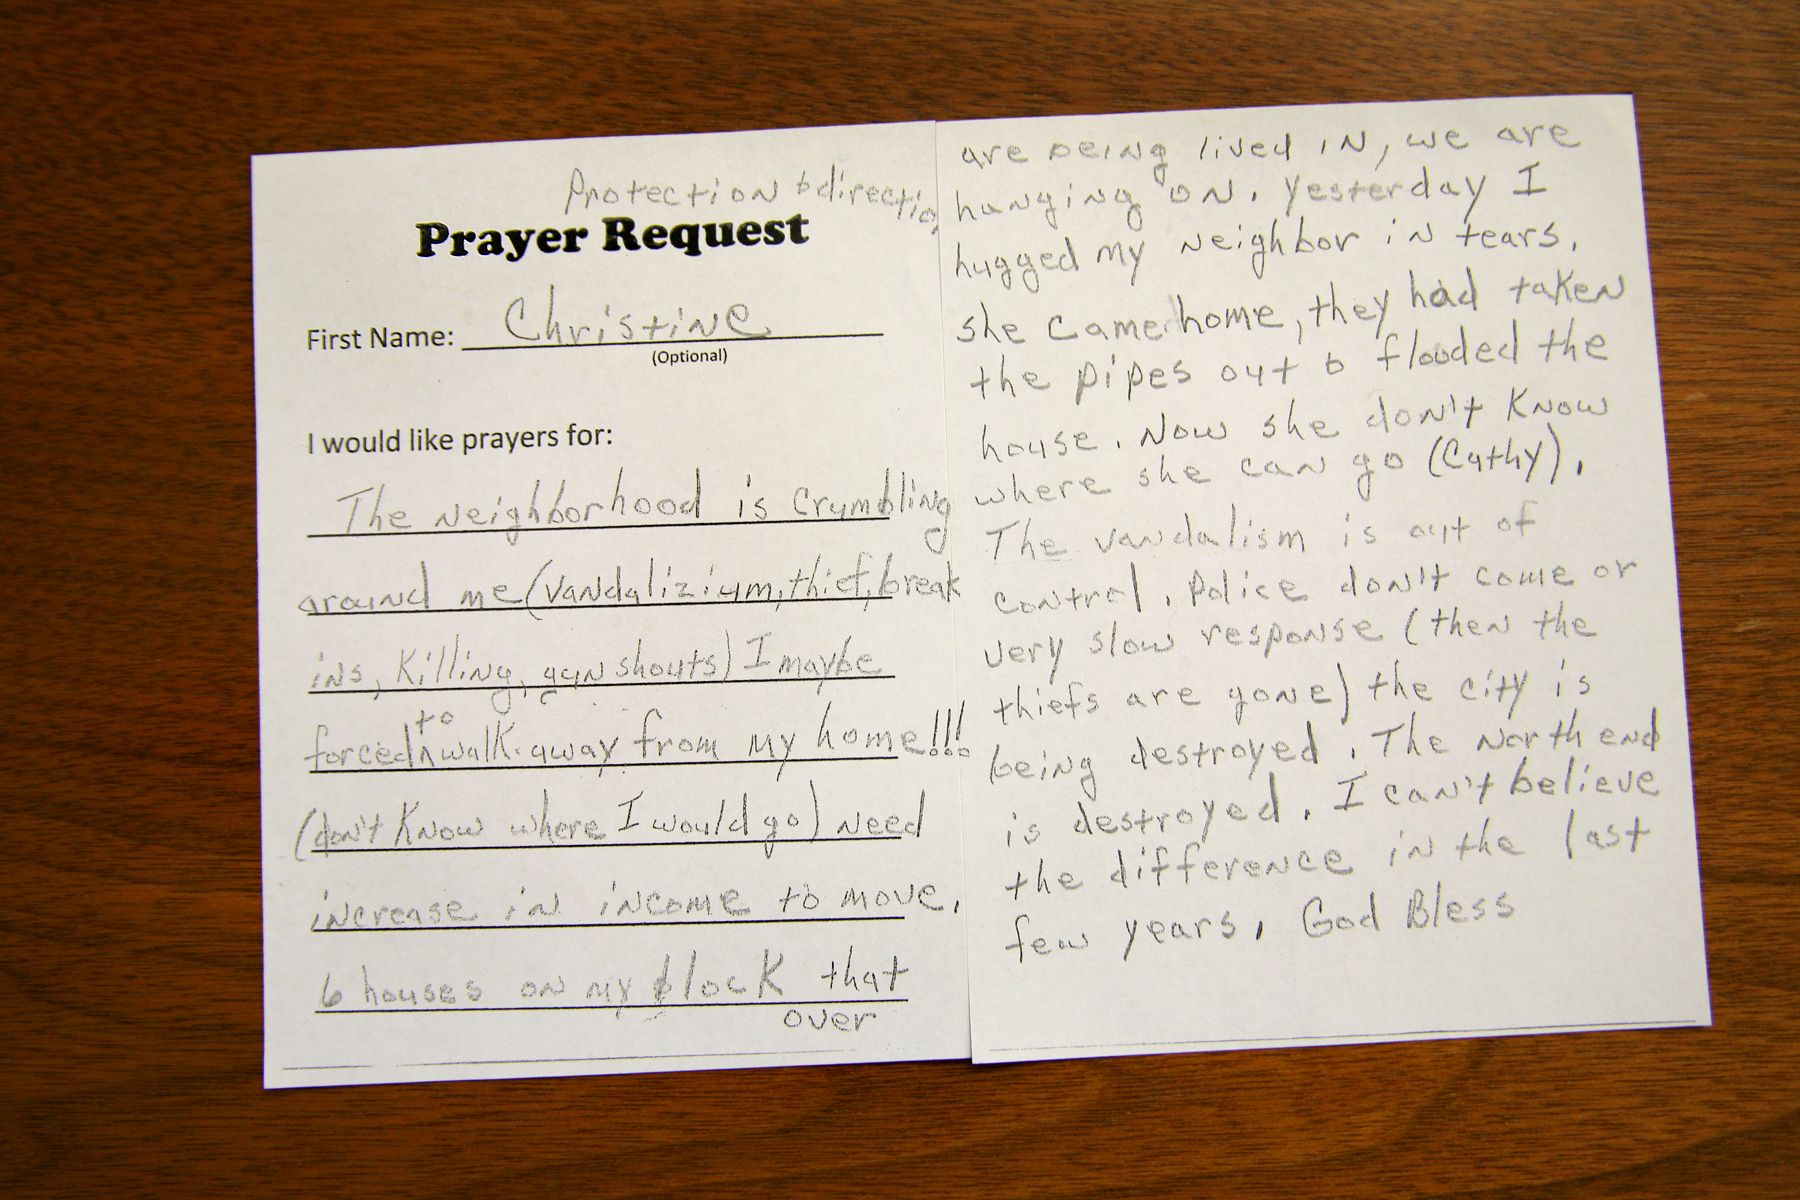 Protection & direction
Prayer Request
First Name: Christine
(Optional)
I would like prayers for:
The neighborhood is crumbling
around me (vandalizium, thief, break
ins, killing, gun shouts) I maybe
forced to walk away from my home!!!
(don't know where I would go) need
increase in income to move.
6 houses on my block that
over
are being lived in, we are
hanging on. Yesterday I
hugged my neighbor in tears.
she came home, they had taken
the pipes out & flooded the
house. Now she don't know
where she can go (Cathy).
The vandalism is out of
control. Police don't come or
very slow response (then the
thiefs are gone) the city is
being destroyed. The north end
is destroyed. I can't believe
the difference in the last
few years. God Bless